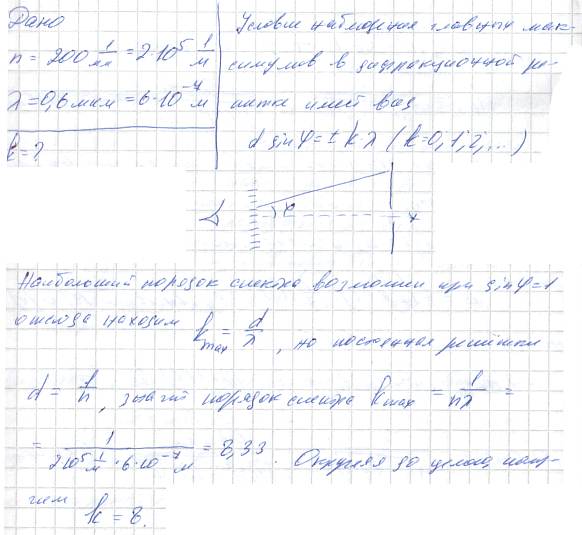 Дано
n = 200 1/мм = 2·10⁵ 1/м
λ = 0,6 мкм = 6·10⁻⁷ м
k = ?
Условие наблюдения главных мак-
симумов в дифракционной ре-
шетке имеет вид
d sin φ = ± k·λ (k=0, 1, 2, ...)
φ
Наибольший порядок спектра возможен при sin φ = 1
отсюда находим k max = d/λ , но постоянная решётки
d = 1/n , значит порядок спектра k max = 1/nλ =
= 1/(2·10⁵ 1/м · 6·10⁻⁷ м) = 8,33 . Округляя до целого, полу-
чаем k = 8.